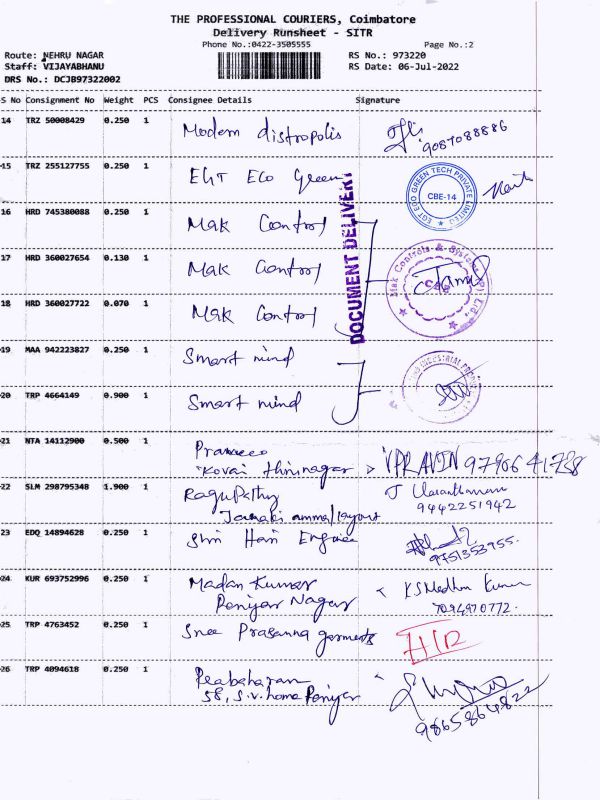 THE PROFESSIONAL COURIERS, Coimbatore
Delivery Runsheet - SITR
Phone No.:0422-3505555 Page No.:2
Route: NEHRU NAGAR RS No.: 973220
Staff: VIJAYABHANU RS Date: 06-Jul-2022
DRS No.: DCJB97322002
S No Consignment No Weight PCS Consignee Details Signature
14 TRZ 50008429 0.250 1 Modern distropolis 9087088886
15 TRZ 255127755 0.250 1 EGT Eco Green
EGT ECO GREEN TECH PRIVATE LIMITED
CBE-14
DOCUMENT DELIVERY
16 HRD 745380088 0.250 1 Mak Control
17 HRD 360027654 0.130 1 Mak Control
Mak Controls & Systems (P) Ltd.,
18 HRD 360027722 0.070 1 Mak Control
19 MAA 942223827 0.250 1 Smart mind
20 TRP 4664149 0.900 1 Smart mind
21 NTA 14112900 0.500 1
Kovai thirunagar VPRAVIN 97906 41738
22 SLM 298795348 1.900 1 Ragupathy
Janaki ammal layout 9442251942
23 EDQ 14894628 0.250 1 Shri Hari 9751353955
24 KUR 693752996 0.250 1 Madan Kumar
Periyar Nagar 7094970772
25 TRP 4763452 0.250 1 Sree Prasanna garments
26 TRP 4094618 0.250 1 Peabaharan
58, S.V. home Periyar 9865864822